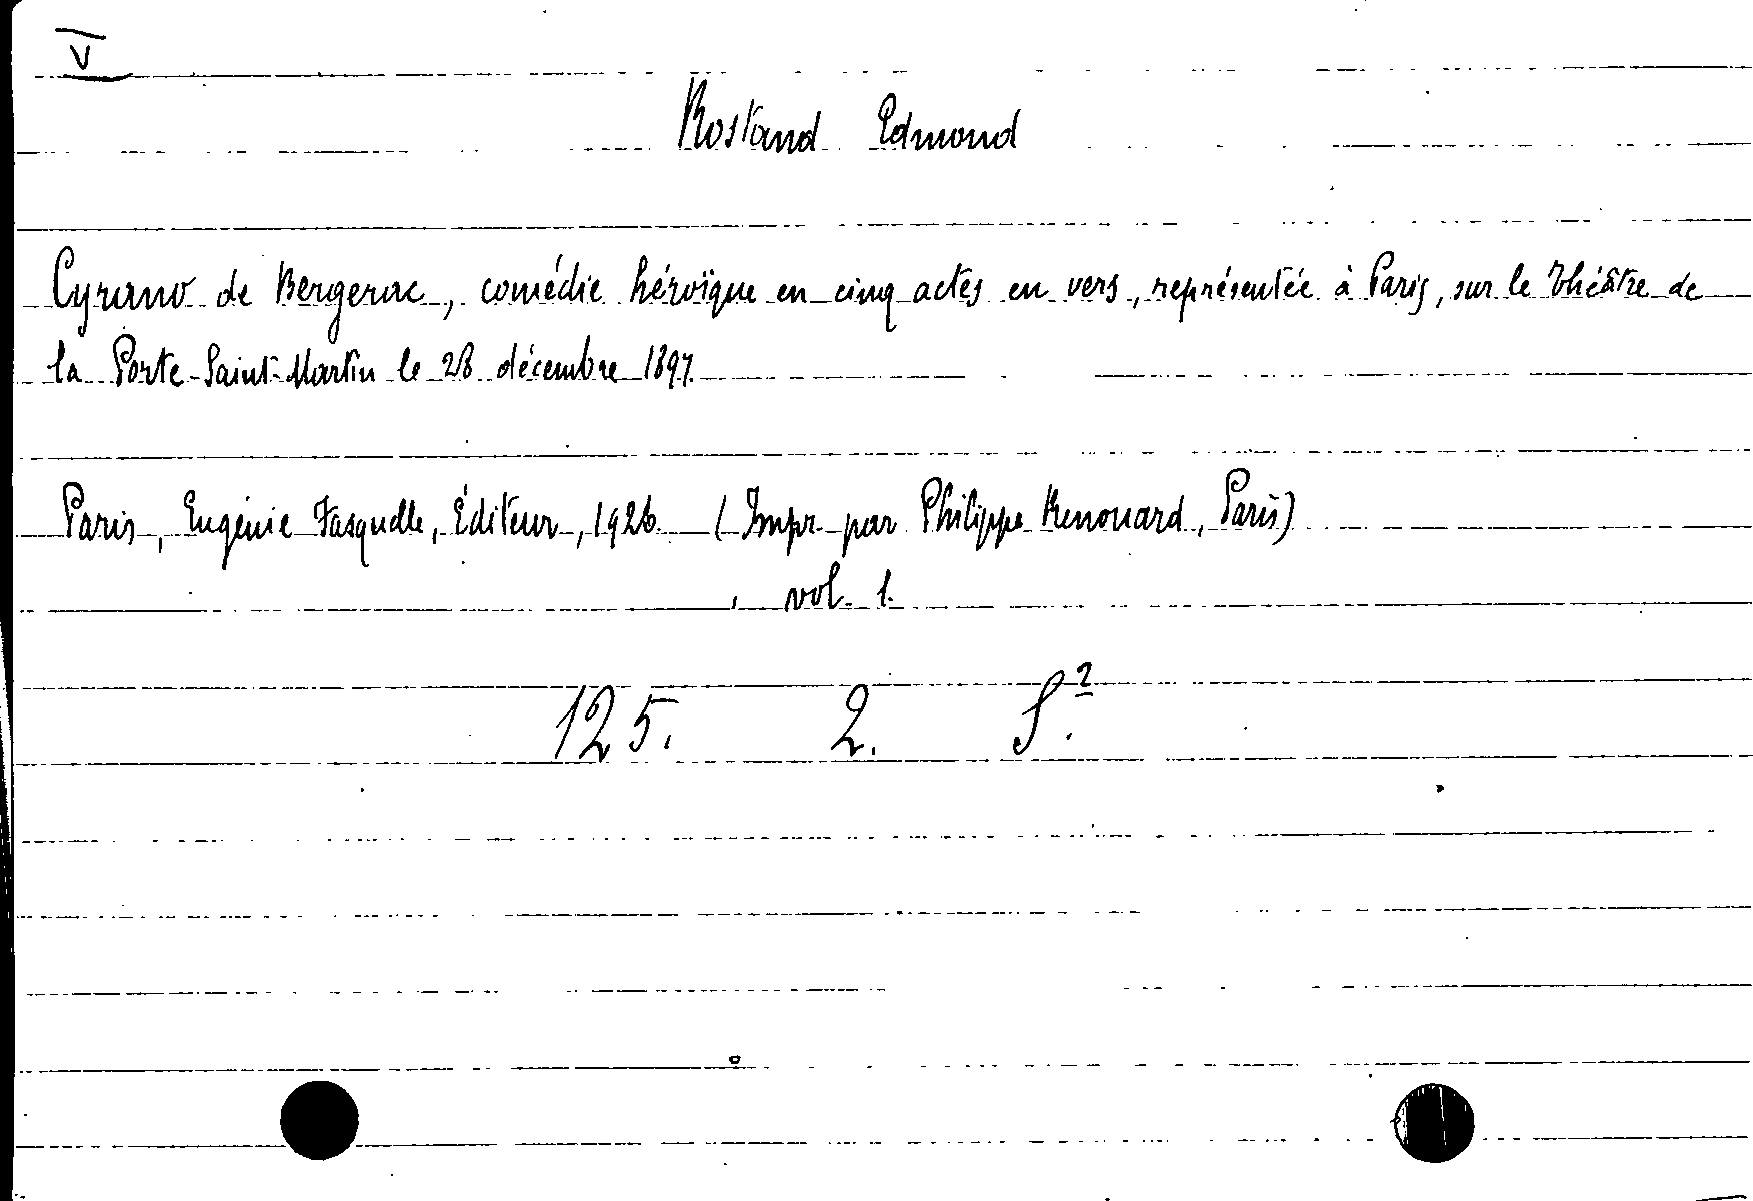 V
Rostand Edmond
Cyrano de Bergerac, comédie héroïque en cinq actes en vers, représentée à Paris, sur le Théâtre de
la Porte-Saint-Martin le 28 décembre 1897.
Paris, Eugénie Fasquelle, Éditeur, 1926. (Impr. par Philippe Renouard, Paris)
vol. 1.
125. 2. S.²